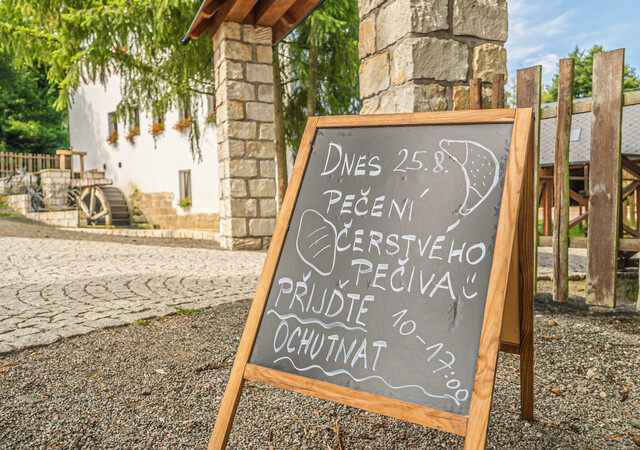 DNES 25.8.
PEČENÍ
ČERSTVÉHO
PEČIVA
PŘIJĎTE
OCHUTNAT 10-17:00